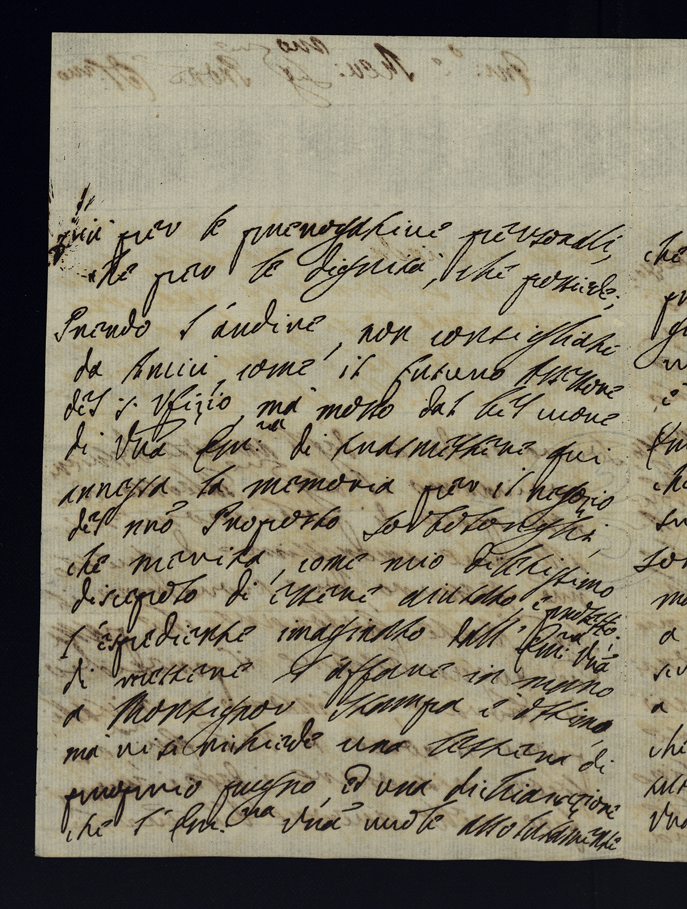 più per le prerogative personali,
che per le dignità, che possiede;
Prendo l'ardire, non consigliato
da Amici, come il futuro Assessore
del S. Ufizio, ma mosso dal bel cuore
di Vra Em:za di trasmettere qui
annessa la memoria per il negozio
del nro Proposto
che merita, come mio dilettissimo
discepolo di essere aiutato, e protetto.
l'espediente imaginato dall' Em:za Vra
di mettere l'affare in mano
a Monsignor Stampa è ottimo,
ma vi si richiede una lettera di
proprio pugno, ed una dichiarazione
che l'Em:za Vra vuole assolutamente